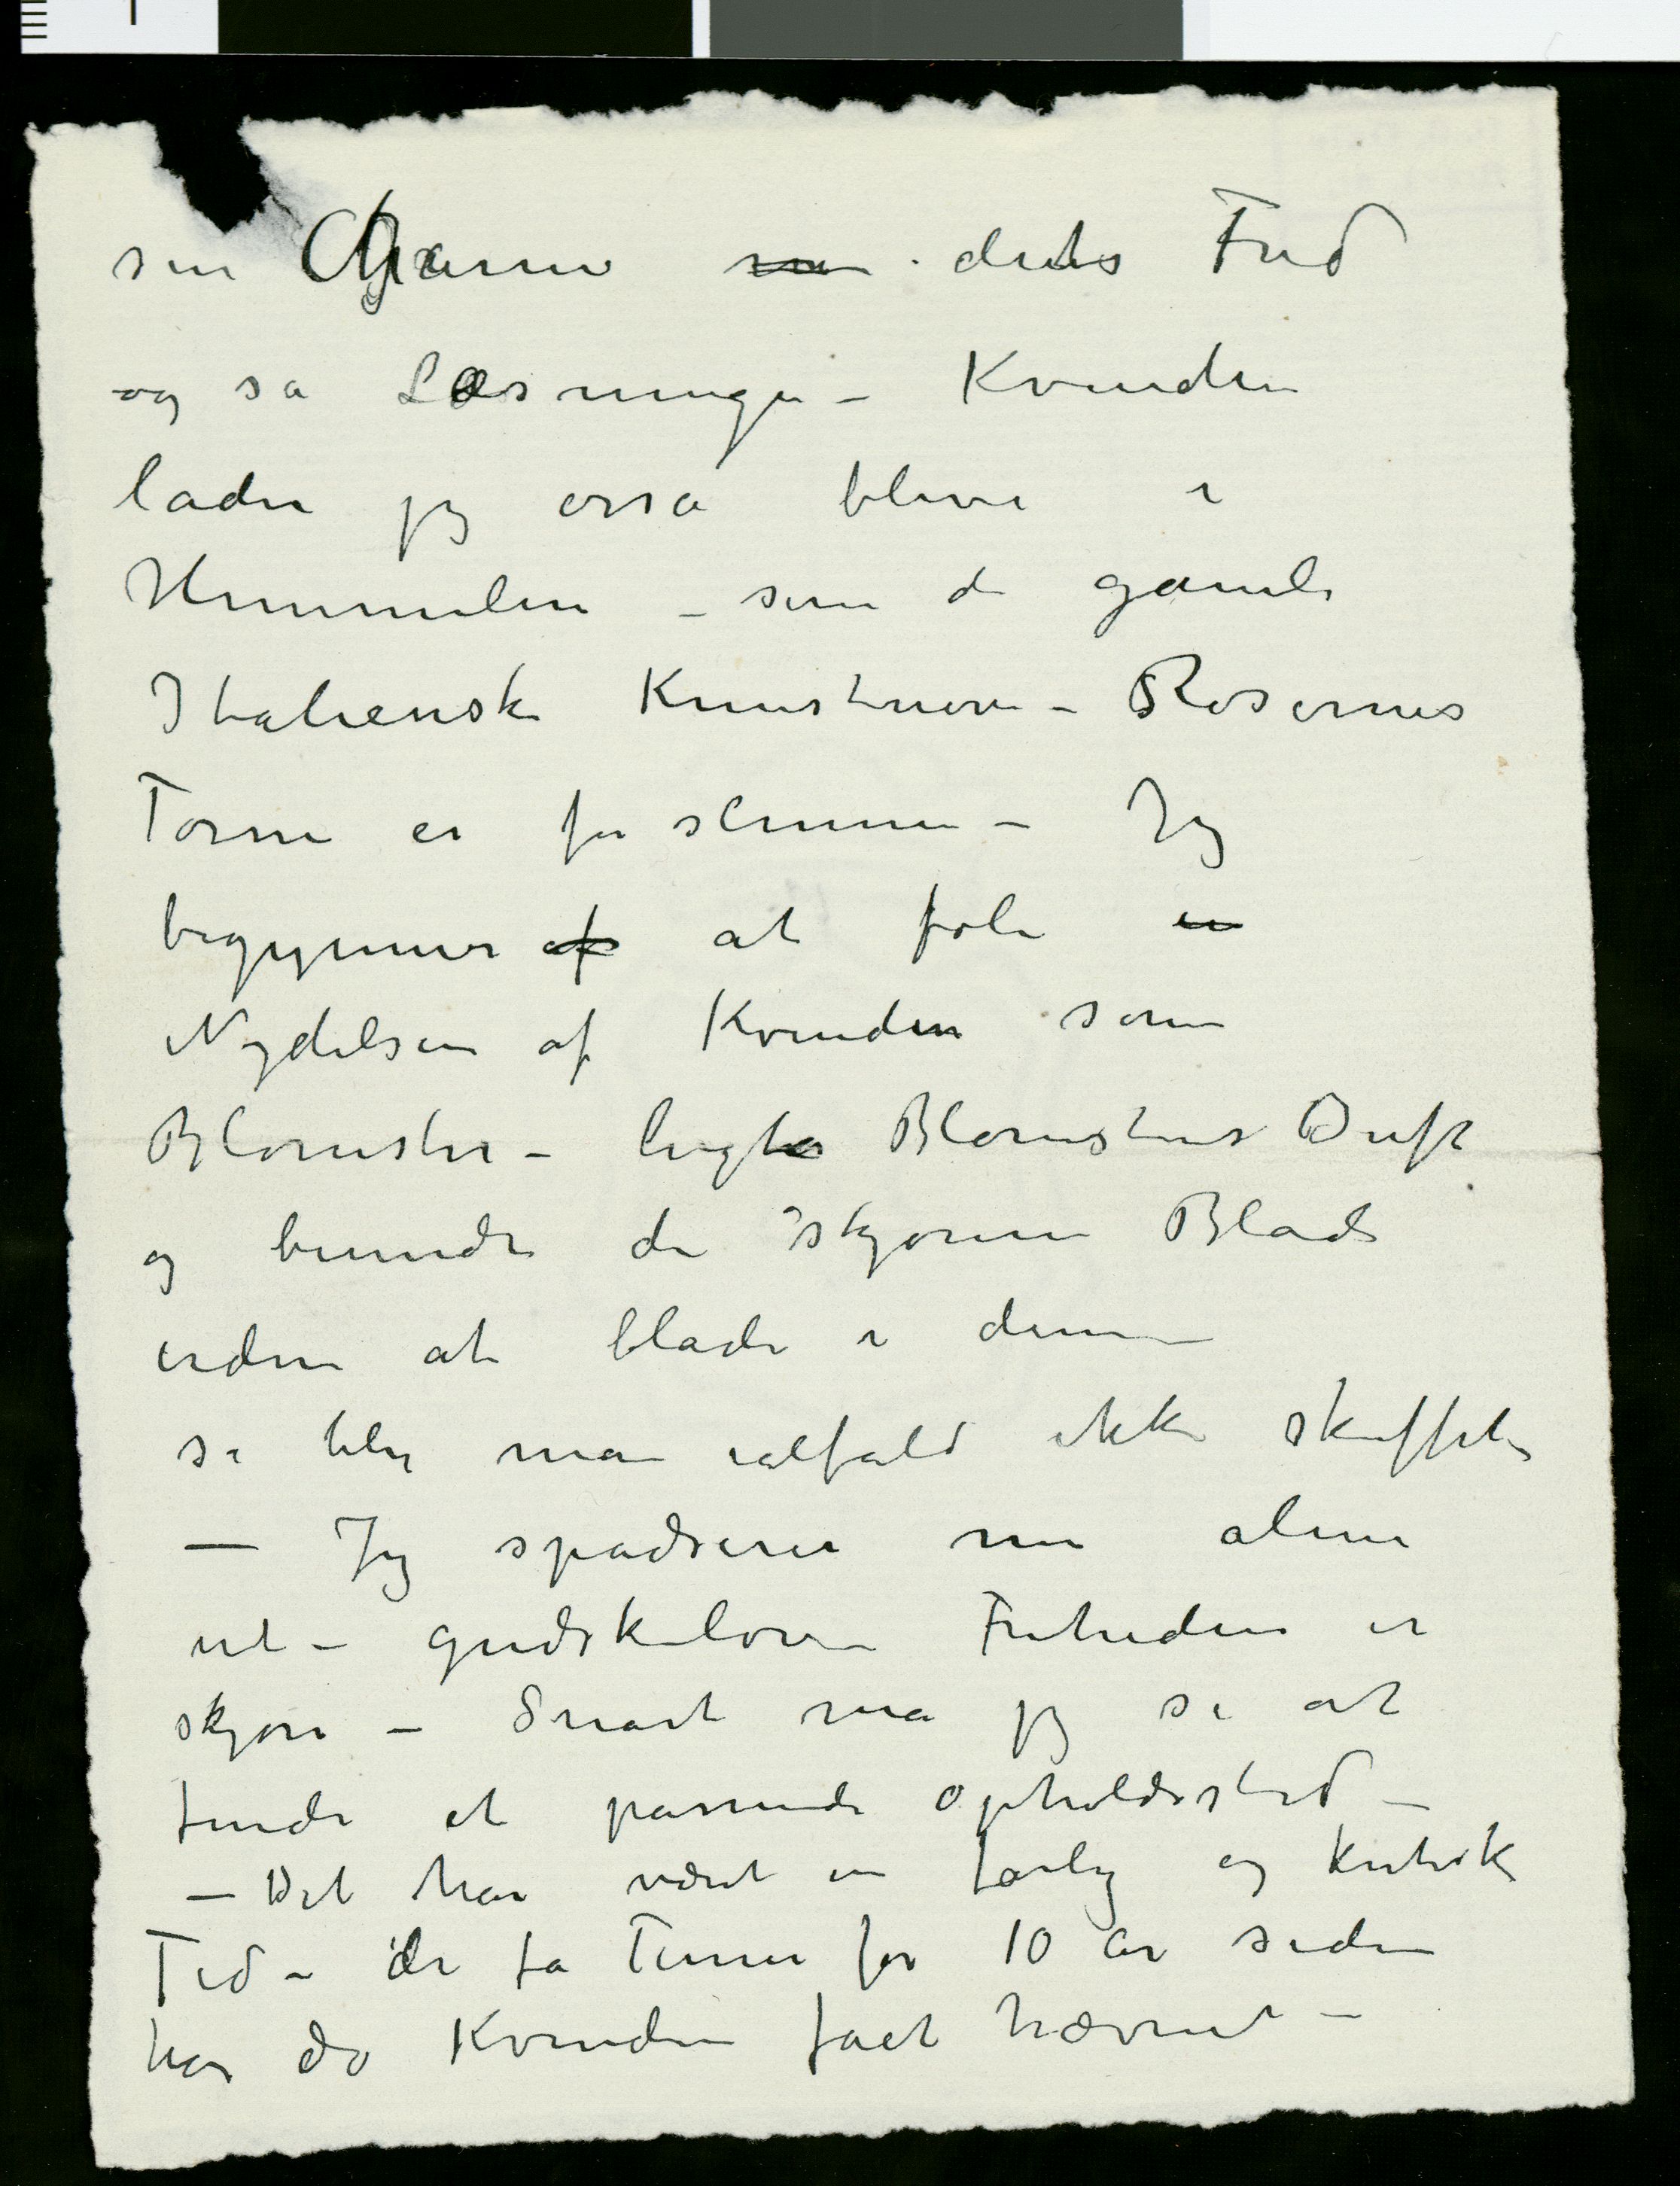 sin Charme dets Fred
og så Læsningen – Kvinden
lader jeg også blive i
Himmelen – som de gamle
Italienske Kunstnere – Rosernes
Torne er for slemme – Jeg
begynner af at føle en
Nydelsen af Kvinden som
Blomster – lugte Blomstens Duft
og beundre de skjønne Blade
uden at blade i dem –
så blir man ialfald ikke skuffet
– Jeg spadserer nu alene
ut – gudskelov – Friheden er
skjøn – Snart må jeg se at
finde et passende Opholdssted –
– Det har været en farlig og kritisk
Tid – de få Timer for 10 år siden
har da Kvinden fået hævnet –